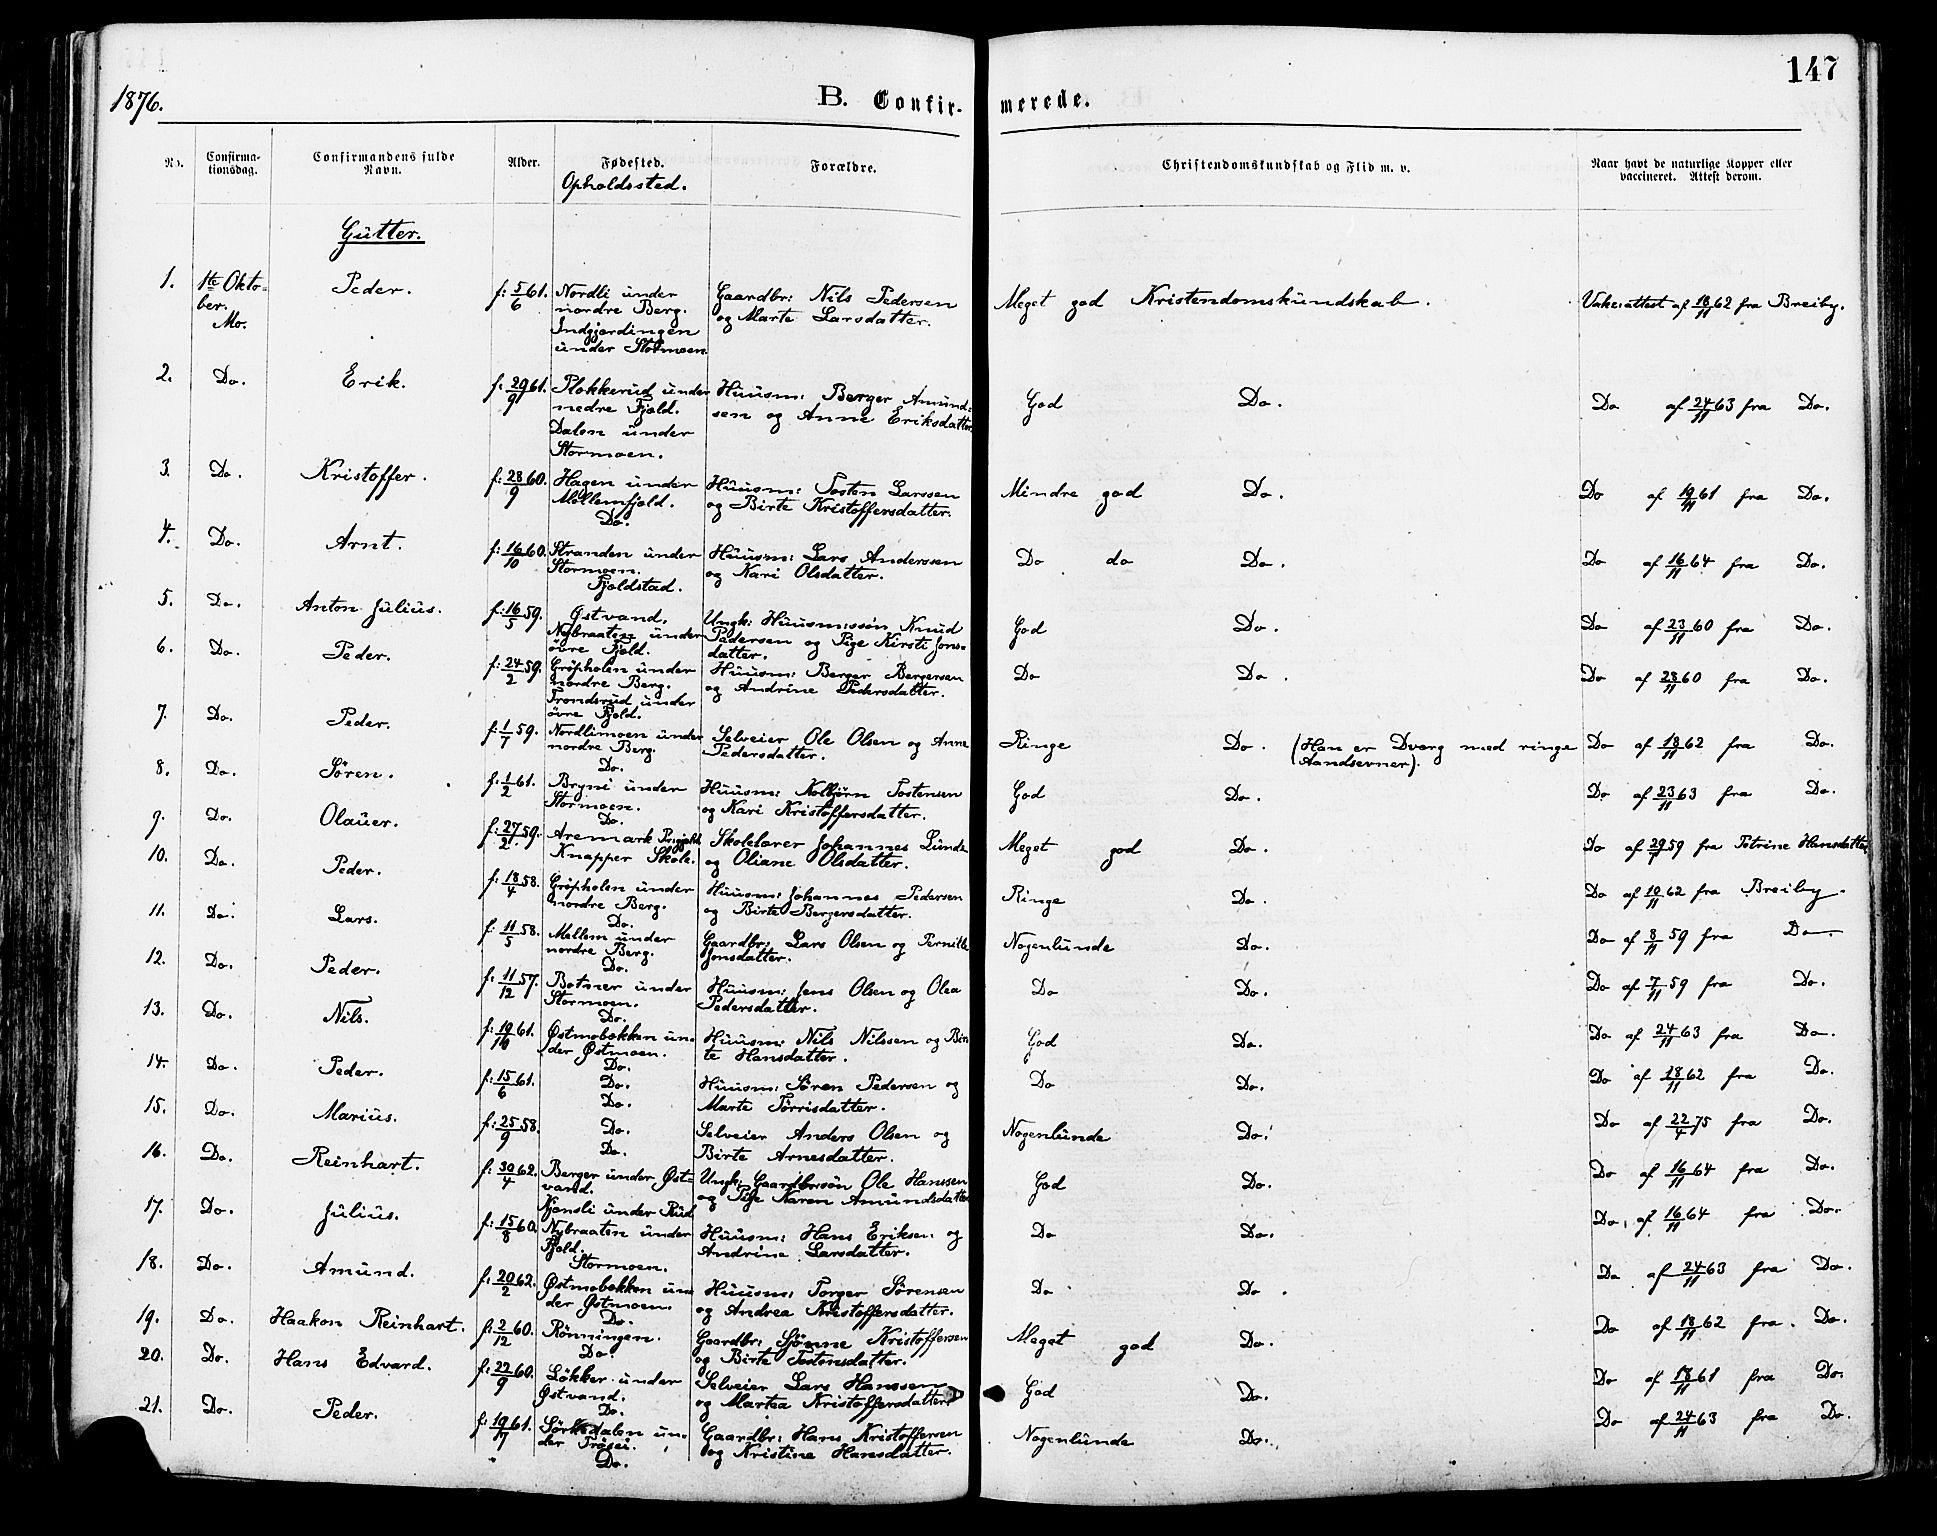 1876.
B. Confirmerede.
147
No. Confirmationsdag. Confirmandens fulde Navn. Alder. Fødested. Opholdssted. Forældre. Christendomskundskab og Flid m. v. Naar havt de naturlige Kopper eller vaccineret. Attest derom.
Gutter.
1. 1ste Oktober. Mo. Peder. f: 5/6 61. Nordli under nordre Berg. Indgjærdingen under Stormoen. Gaardbr: Nils Pedersen og Marte Larsdatter. Meget god Kristendomskundskab. Vakc: attest af 18/11 62 fra Breiby.
2. Do. Erik. f: 29/9 61. Plokkerud under nedre Fjeld. Dalen under Stormoen. Huusm: Berger Amundsen og Anne Eriksdatter. God Do. Do af 24/11 63 fra Do.
3. Do. Kristoffer. f: 28/9 60. Hagen under Mellemfjeld. Do. Huusm: Tosten Larssen og Birte Kristoffersdatter. Mindre god Do. Do af 19/11 61 fra Do.
4. Do. Arnt. f: 16/10 60. Stranden under Stormoen. Fjeldstad. Huusm: Lars Anderssen og Kari Olsdatter. Do do Do. Do af 16/11 64 fra Do.
5. Do. Anton Julius. f: 16/5 59. Østvand. Nybraaten under øvre Fjeld. Ungk: Huusm:søn Knud Pedersen og Pige Kirsti Jonsdatter. God Do. Do af 23/11 60 fra Do.
6. Do. Peder. f: 24/2 59. Grøpholen under nordre Berg. Tromdsrud under øvre Fjeld. Huusm: Berger Bergersen og Andrine Pedersdatter. Do Do. Do af 23/11 60 fra Do.
7. Do. Peder. f: 1/7 59. Nordlimoen under nordre Berg. Do. Selveier Ole Olsen og Anne Pedersdatter. Ringe Do. (Han er Dverg med ringe Aandsevner). Do af 18/11 62 fra Do.
8. Do. Søren. f: 1/2 61. Bryni under Stormoen. Do. Huusm: Kolbjørn Tostensen og Kari Kristoffersdatter. God Do. Do af 23/11 63 fra Do.
9. Do. Olauer. f: 27/2 59. Aremark Prgjeld. Knapper Skole. Skolelærer Johannes Lunde og Oliane Olsdatter. Meget god Do. Do af 29/ 59 fra Petrine Hansdatter.
10. Do. Peder. f: 18/4 58. Grøpholen under nordre Berg. Do. Huusm: Johannes Pedersen og Birte Bergersdatter. Ringe Do. Do af 10/11 62 fra Breiby.
11. Do. Lars. f: 11/5 58. Mellem under nordre Berg. Do. Gaardbr: Lars Olsen og Pernille Jonsdatter. Nogenlunde Do. Do af 8/11 59 fra Do.
12. Do. Peder. f: 11/12 57. Botner under Stormoen. Do. Huusm: Jens Olsen og Olea Pedersdatter. Do Do. Do af 7/11 59 fra Do.
13. Do. Nils. f: 19/10 61. Østmobekken under Østmoen. Do. Huusm: Nils Nilssen og Birte Hansdatter. God Do. Do af 24/11 63 fra Do.
14. Do. Peder. f: 15/6 61. Do. Do. Huusm: Søren Pedersen og Marte Tørrisdatter. Do Do. Do af 18/11 62 fra Do.
15. Do. Marius. f: 25/9 58. Do. Do. Selveier Anders Olsen og Birte Arnesdatter. Nogenlunde Do. Do af 22/4 75 fra Do.
16. Do. Reinhart. f: 30/4 62. Berger under Østvand. Kjønsli under Rud. Ungk: Gaardbr:søn Ole Hanssen og Pige Karen Amundsdatter. God Do. Do af 16/11 64 fra Do.
17. Do. Julius. f: 15/8 60. Nybraaten under Fjeld. Stormoen. Huusm: Hans Eriksen og Andrine Larsdatter. Do Do. Do. af 16/11 64 fra Do.
18. Do. Amund. f: 20/2 62. Østmobekken under Østmoen. Do. Huusm: Torger Sørensen og Andrea Kristoffersdatter. Do Do. Do af 24/11 63 fra Do.
19. Do. Haakon Reinhart. f: 2/12 60. Rønningen. Do. Gaardbr: Sjønne Kristoffersen og Birte Tostensdatter. Meget god Do. Do af 18/11 62 fra Do.
20. Do. Hans Edvard. f: 22/9 60. Løkker under Østvand. Do. Selveier Lars Hanssen og Martea Kristoffersdatter. God Do. Do af 18/11 61 fra Do.
21. Do. Peder. f: 19/ 61. Sørkedalen under Trøsei. Do. Gaardbr: Hans Kristoffersen og Kristine Hansdatter. Nogenlunde Do. Do af 24/11 63 fra Do.